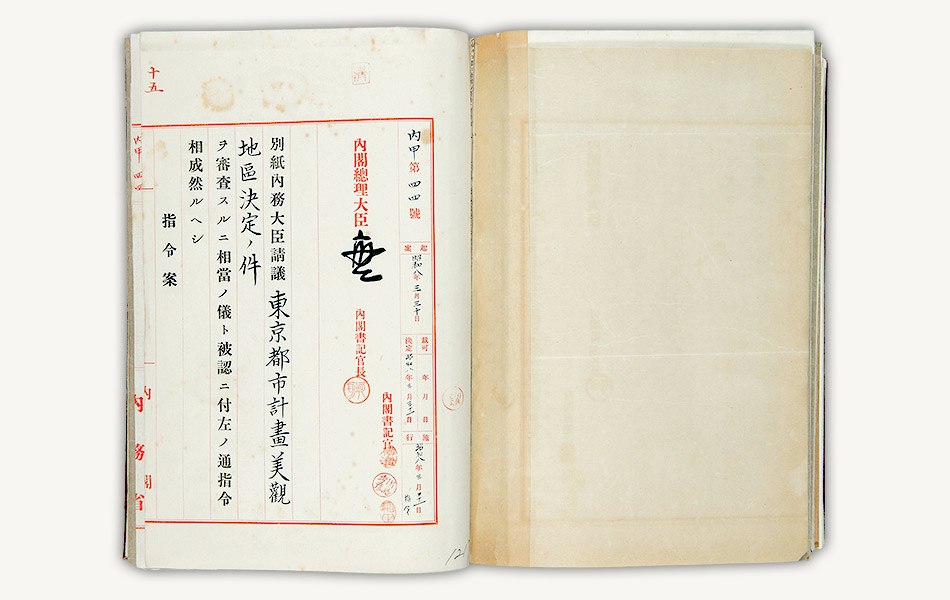 十五
丙甲第四四號
起案 昭和八年三月三十日
裁可 年 月 日
決定 昭和八年 月 日
施行 昭和八年 月 日
指令
內閣總理大臣
內閣書記官長
內閣書記官
別紙內務大臣請議東京都市計畫美觀
地區決定ノ件
ヲ審査スルニ相當ノ儀ト被認ニ付左ノ通指令
相成然ルヘシ
指令案
丙甲 四四
內務省
內閣
121